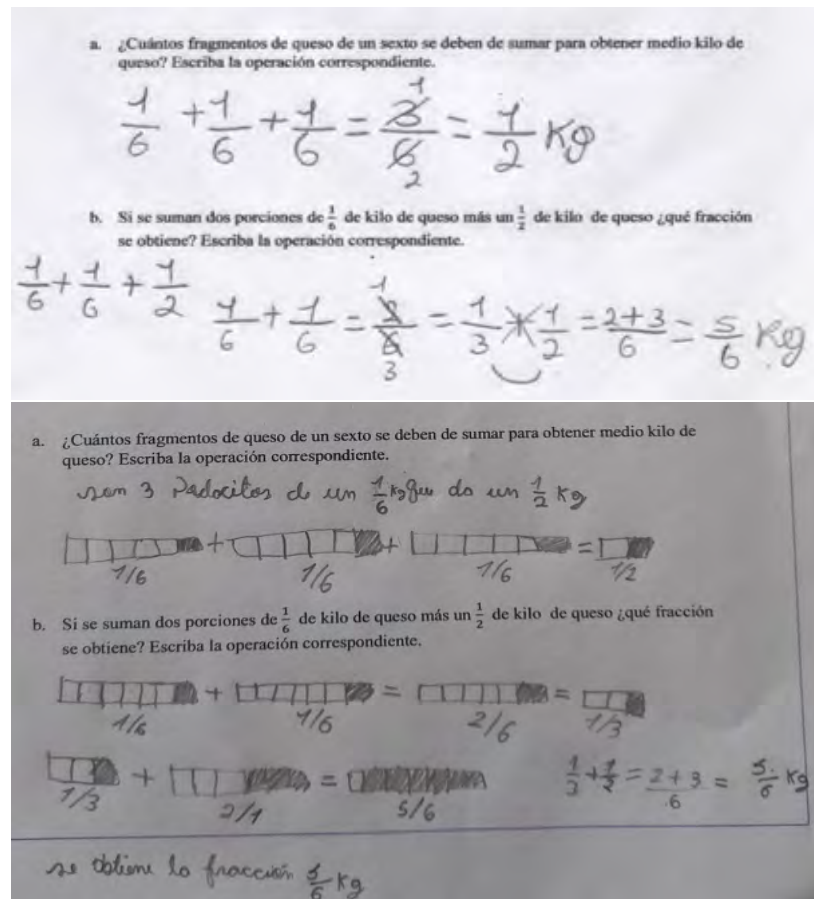 a. ¿Cuántos fragmentos de queso de un sexto se deben de sumar para obtener medio kilo de
queso? Escriba la operación correspondiente.
1/6 + 1/6 + 1/6 = 3/6 = 1/2 Kg
1
2
b. Si se suman dos porciones de 1/6 de kilo de queso más un 1/2 de kilo de queso ¿qué fracción
se obtiene? Escriba la operación correspondiente.
1/6 + 1/6 + 1/2
1/6 + 1/6 = 2/6 = 1/3 + 1/2 = 2+3/6 = 5/6 Kg
1
3
a. ¿Cuántos fragmentos de queso de un sexto se deben de sumar para obtener medio kilo de
queso? Escriba la operación correspondiente.
son 3 Pedocitos de un 1/6 kg que da un 1/2 Kg
+ + =
1/6 1/6 1/6 1/2
b. Si se suman dos porciones de 1/6 de kilo de queso más un 1/2 de kilo de queso ¿qué fracción
se obtiene? Escriba la operación correspondiente.
+ = =
1/6 1/6 2/6 1/3
+ = 1/3 + 1/2 = 2+3/6 = 5/6 Kg
1/3 2/1 5/6
se obtiene la fracción 5/6 Kg